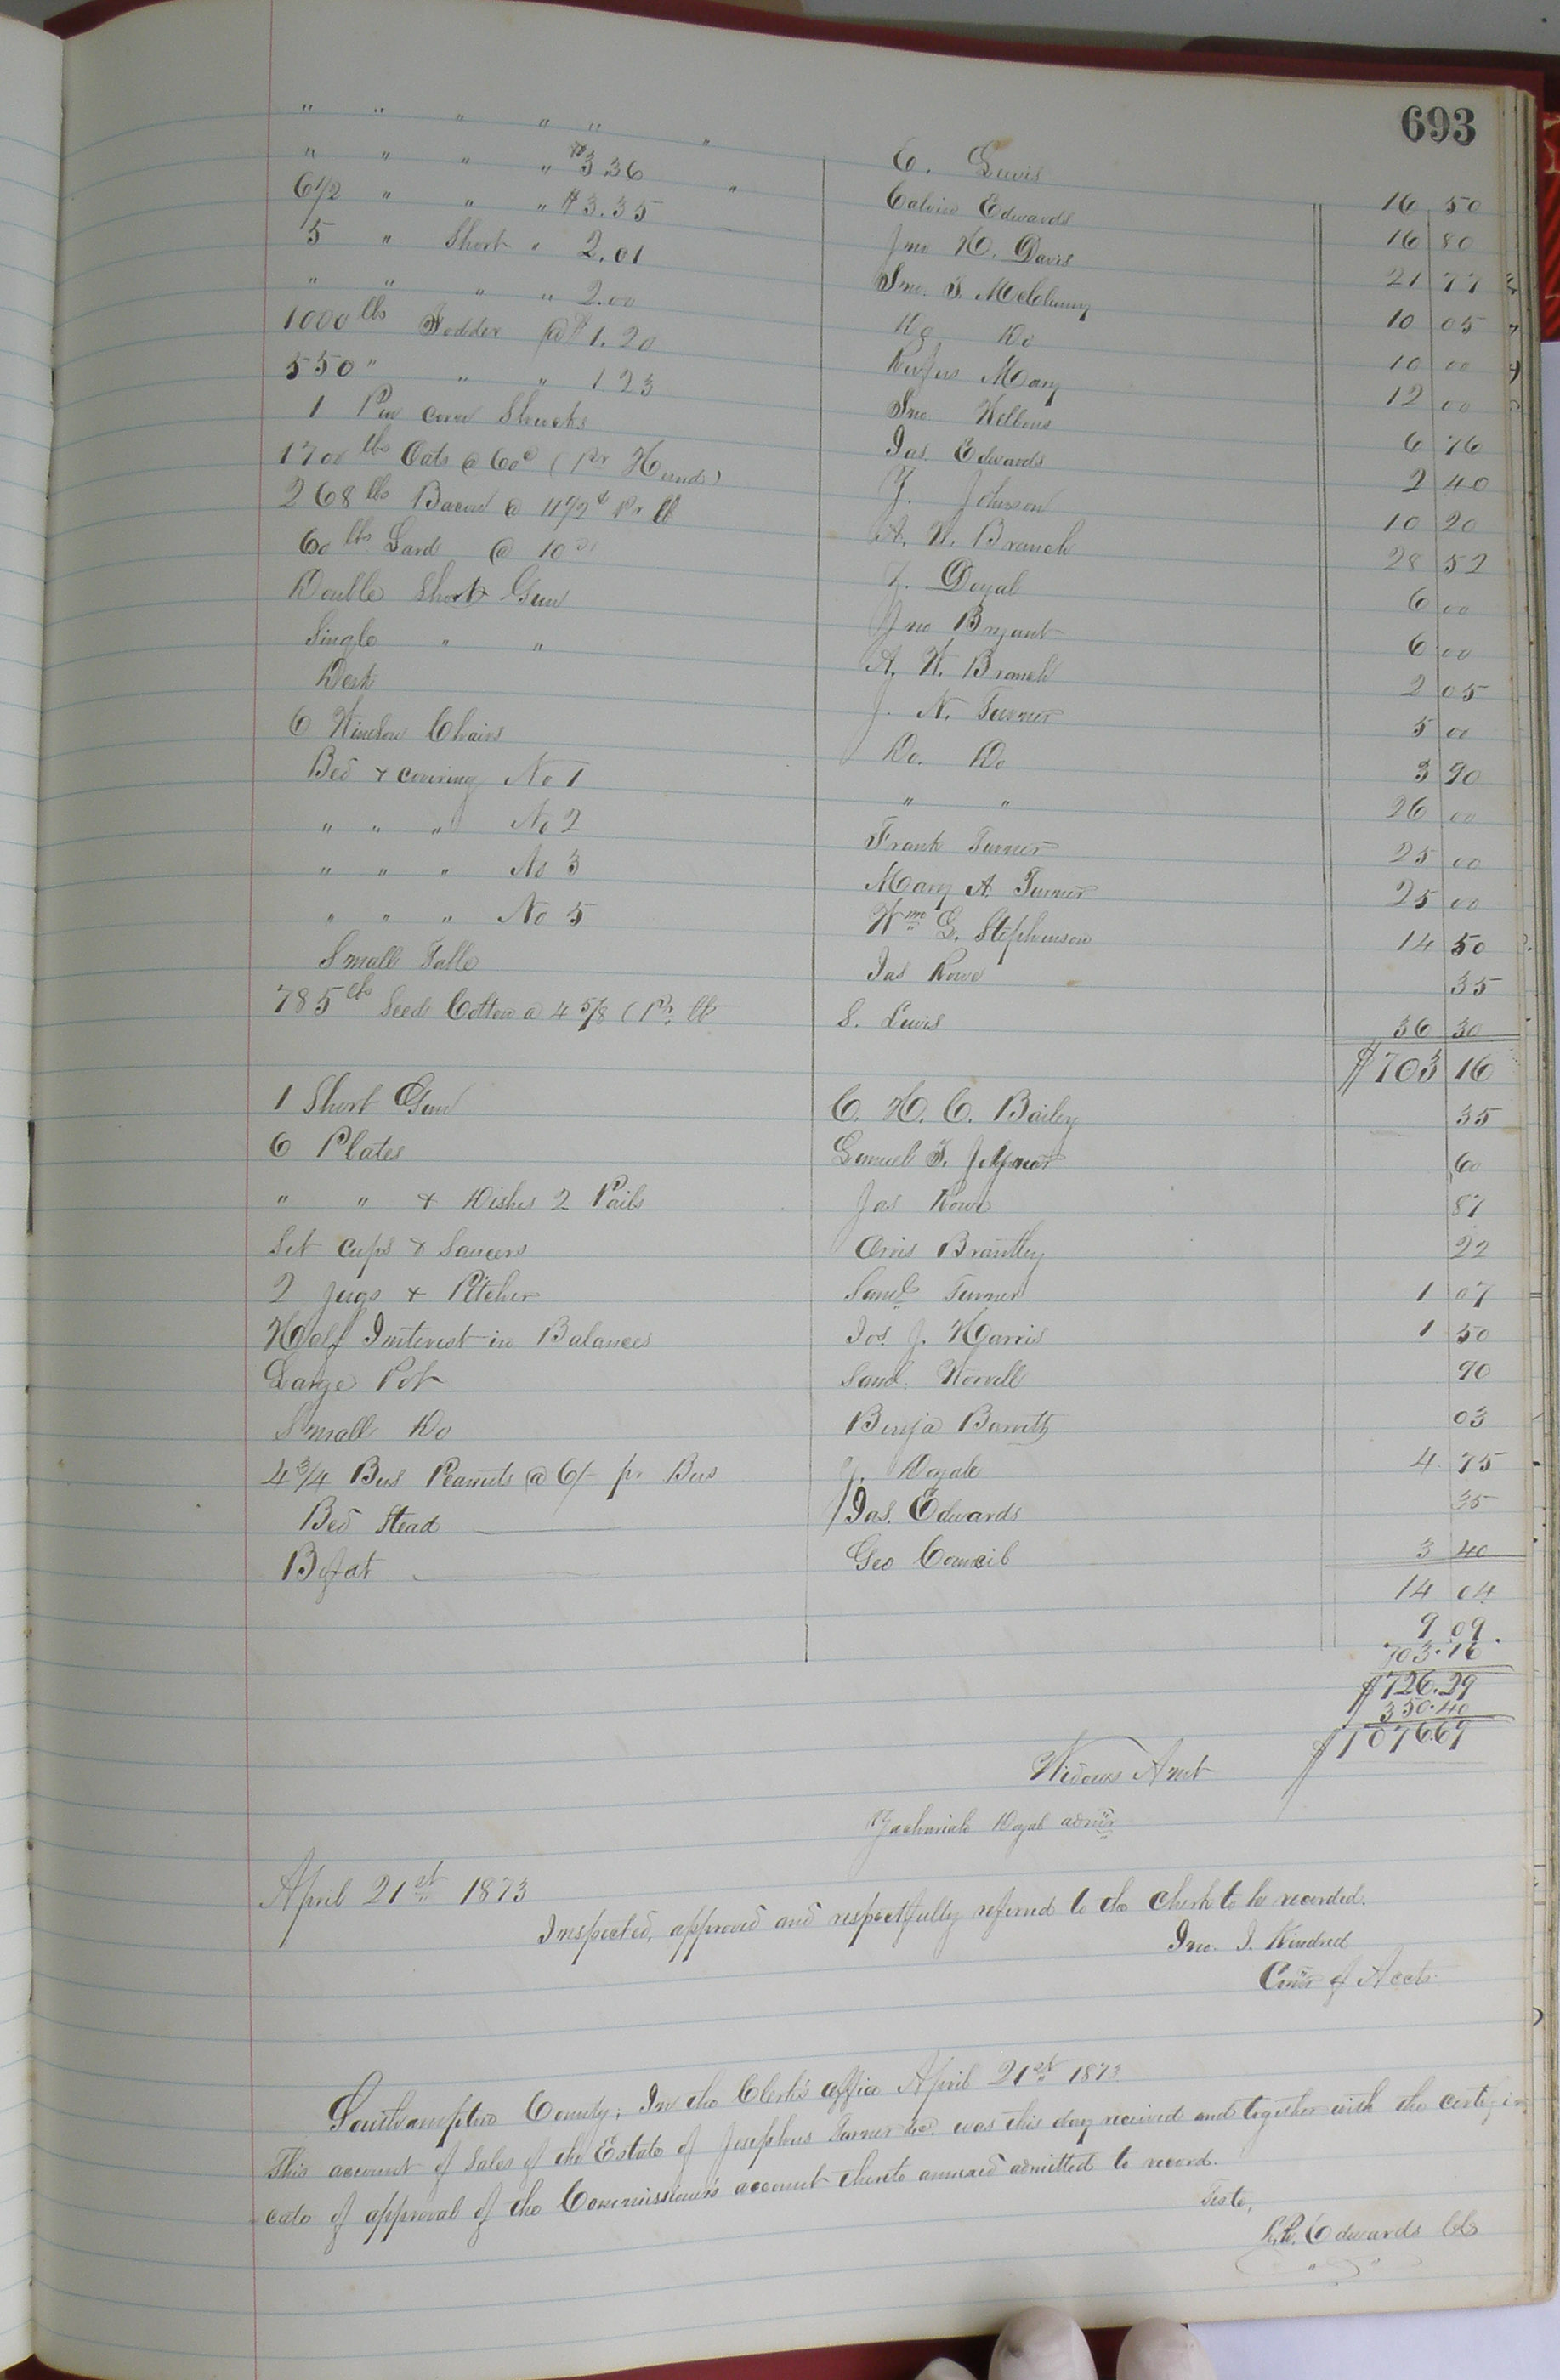 693
" " " " " " C. Lewis 16 50
" " " " $3.36 " Calvin Edwards 16 80
6 1/2 " " " $3.35 Jno H. Davis 21 77
5 " Short " 2.01 Jno. T. 10 05
" " " " 2.00 Do Do 10 00
1000 lbs Fodder @ $1.20 Rufus Mary 12 00
550 " " " 1 23 Jno Wellons 6 76
1 Pen corn Shucks Jas. Edwards 2 40
1700 lbs Oats @ 60c (Pr Hund) J. Johnson 10 20
268 lbs Bacon @ 11 1/2 ¢ Pr lb A. W. Branch 28 52
60 lbs Lard @ 10 Z. Doyal 6 00
Double Short Gun Jno Bryant 6 00
Single " " A. W. Branch 2 05
Desk J. N. Turner 5 00
6 Windsor Chairs Do. Do 3 90
Bed & covering No 1 " " 26 00
" " " No 2 Frank Turner 25 00
" " " No 3 Mary A. Turner 25 00
" " " No 5 Wm G. Stephenson 14 50
Small Table Jas Rowe 35
785 lbs Seed Cotton @ 4 5/8 (Pr. lb S. Lewis 36 30
$703 16
1 Short Gun C. H. C. Bailey 35
6 Plates Samuel T. 60
" " & Dishes 2 Pails Jas Rowe 87
Set cups & Saucers Orris Brantley 22
2 Jugs & Pitcher Saml Turner 1 07
Half Interest in Balances Jos. J. Harris 1 50
Large Pot Saml. Worrell 90
Small Do Benja Barrett 03
4 3/4 Bus Peanuts @ 6/- pr Bus Z. Doyale 4 75
Bed Stead Jas. Edwards 35
Bofat Geo Council 3 40
14 04
9 09.
703.16
$726.29
350.40
Widows Amt $1076.69
Zachariah Doyal admr
April 21st 1873
Inspected, approved and respectfully referred to the Clerk to be recorded.
Jno. J. Kindred
Comr of Accts.
Southampton County; In the Clerk's office April 21st 1873.
This account of Sales of the Estate of Josephus Turner dec. was this day received and together with the certifi
cate of approval of the Commissioner's account thereto annexed admitted to record.
Teste,
L. R. Edwards Clk